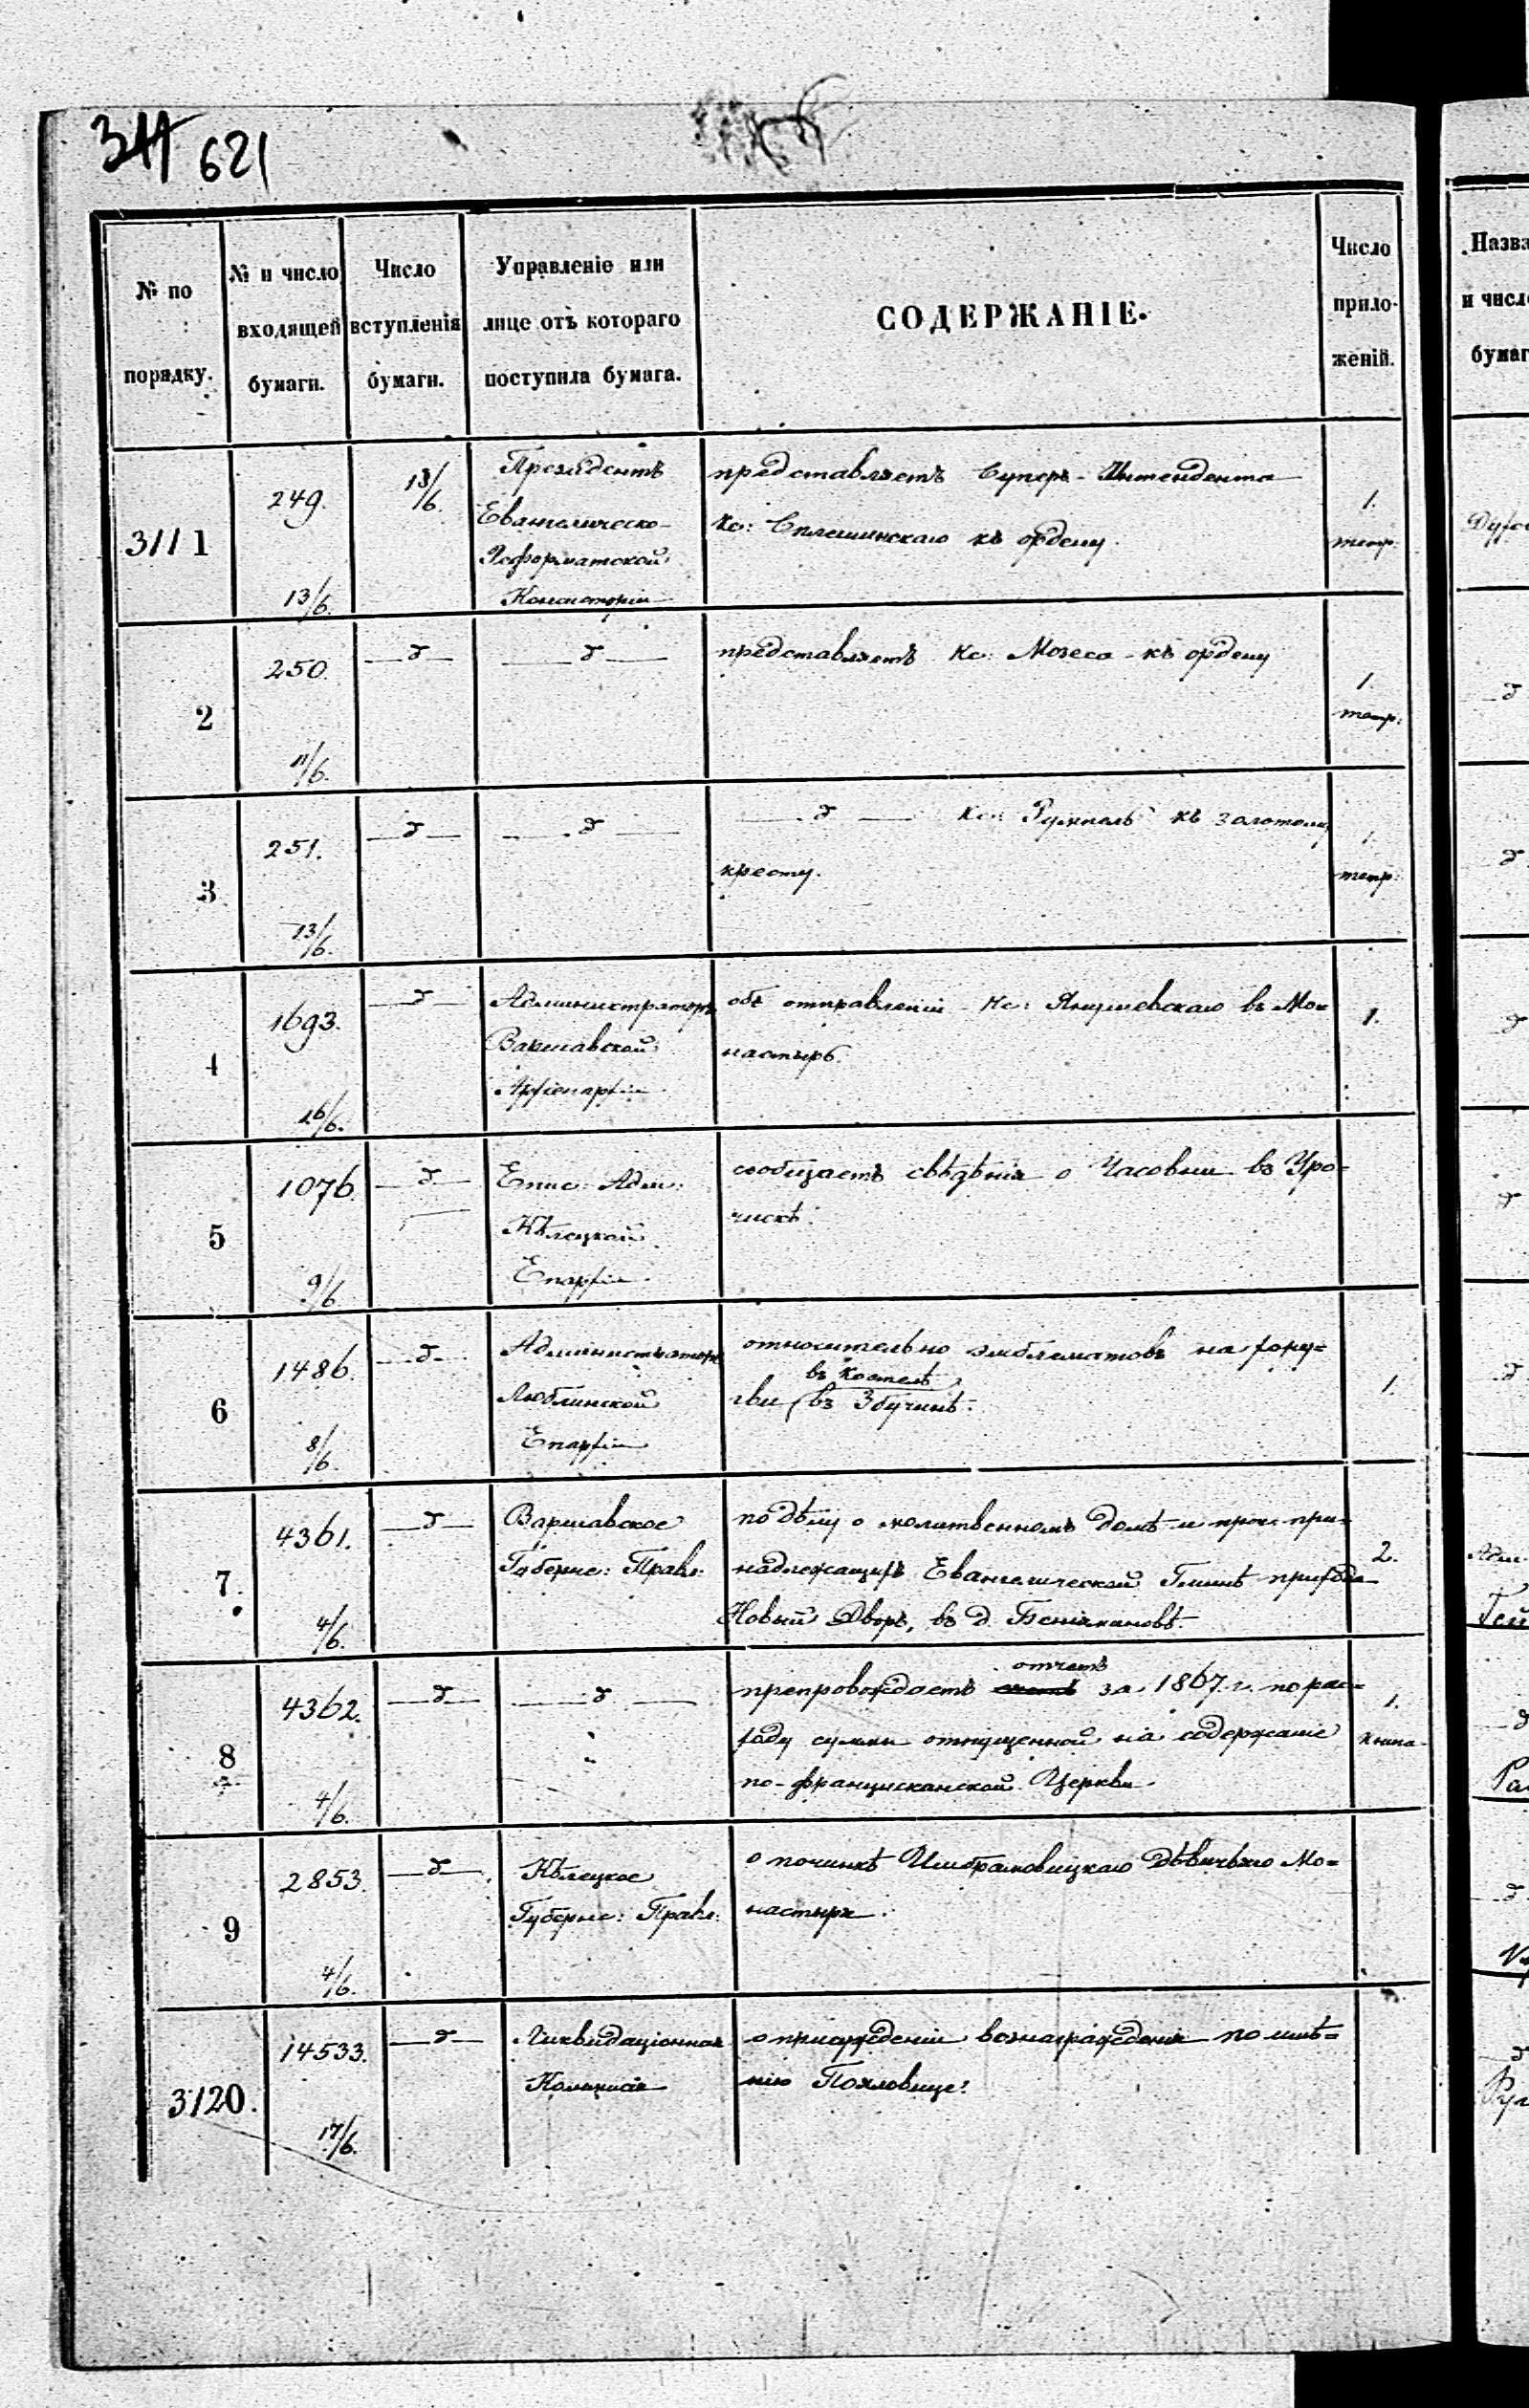 311 621
№ по порядку.
№ и число входящей бумаги.
Число вступленія бумаги.
Управленіе или лице отъ котораго поступила бумага.
СОДЕРЖАНІЕ.
Число прило-женій.
3111
249.
13/6.
13/6.
Президентъ
Евангелическо-
Реформатской
Консисторіи
представляетъ Суперъ-Интендента
Кс: Сплешинскаго къ ордену.
1.
тетр.
2
250.
11/6.
—д—
—д—
представляетъ Кс: Мозеса къ ордену
1.
тетр:
3
251.
13/6.
—д—
—д—
—д— Кс: Румпель къ золотому
кресту.
1.
тетр:
4
1693.
16/6.
—д—
Администраторъ
Варшавской
Архіепархіи
объ отправленіи Кс: въ Мо=
настырь.
1.
5
1076
9/6
—д—
Епис: Адм:
Кѣлецкой
Епархіи.
сообщаетъ свѣдѣнія о Часовни въ Уро=
чискѣ.
6
1486.
8/6.
—д—
Администраторъ
Люблинской
Епархіи
относительно эмблематовъ на хору=
въ Костелѣ
гви въ Збучинѣ.
1.
7.
4361.
4/6.
—д—
Варшавское
Губернс: Правл:
по дѣлу о молитвенномъ домѣ и проч. при=
надлежащихъ Евангелической Гминѣ прихода
Новый Дворъ, въ д.
2.
8
4362.
4/6.
—д—
—д—
отчетъ
препровождаетъ за 1867. г. по рас=
ходу суммы отпущенной на содержаніе
по-францисканской Церкви.
1.
книга
9
2853.
4/6.
—д—
Кѣлецкое
Губернс: Правл:
о починкѣ Имбрамовицкаго Дѣвичьяго Мо=
настыря.
3120.
14533.
17/6.
—д—
Ликвидаціонная
Коммисія
о присужденіи вознагражденія по имѣ=
нію
Назва
и числ
бумаг
д
д
д
д
д
Адм.
д
д
д